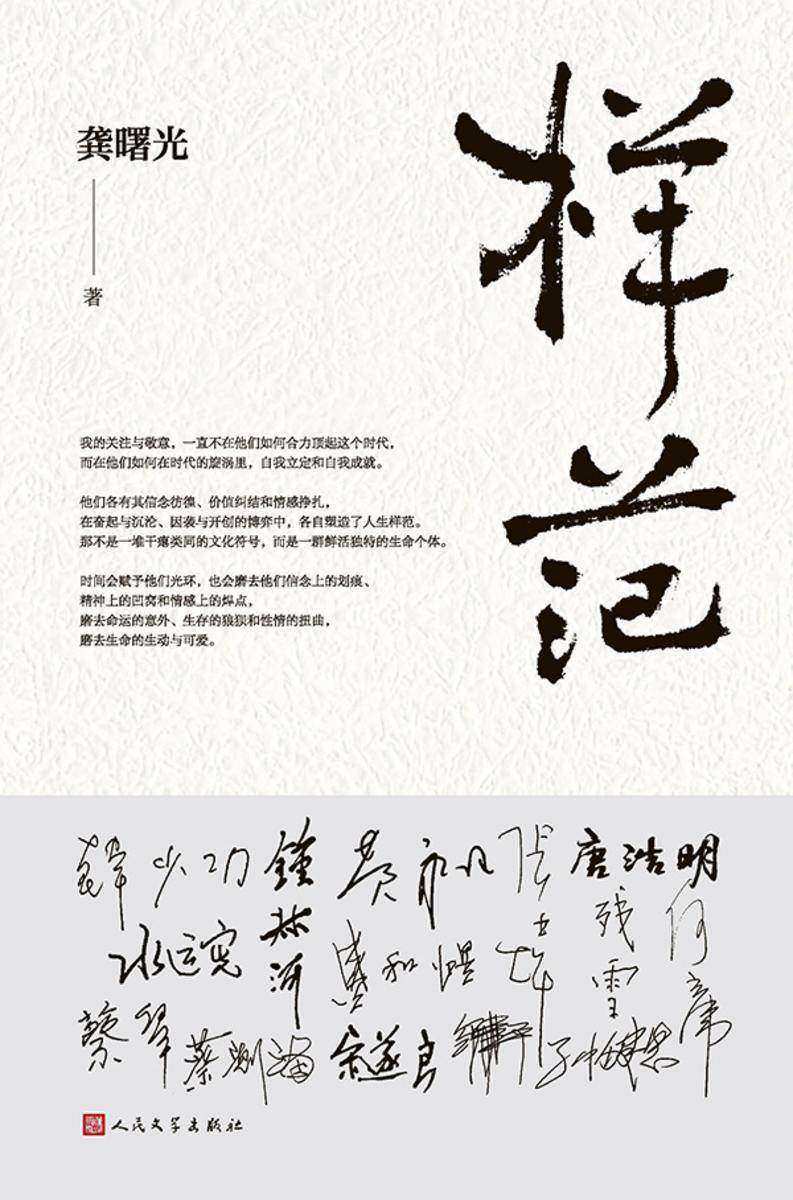 样范
龚曙光
著
我的关注与敬意，一直不在他们如何合力顶起这个时代，
而在他们如何在时代的旋涡里，自我立定和自我成就。
他们各有其信念彷徨、价值纠结和情感挣扎，
在奋起与沉沦、因袭与开创的博弈中，各自塑造了人生样范。
那不是一堆干瘪类同的文化符号，而是一群鲜活独特的生命个体。
时间会赋予他们光环，也会磨去他们信念上的划痕、
精神上的凹窝和情感上的焊点，
磨去命运的意外、生存的狼狈和性情的扭曲，
磨去生命的生动与可爱。
韩少功
鍾叔河
黄永玉
张士
唐浩明
残雪
何立偉
水运宪
盛和煜
蔡皋
蔡测海
宗遂良
人民文学出版社